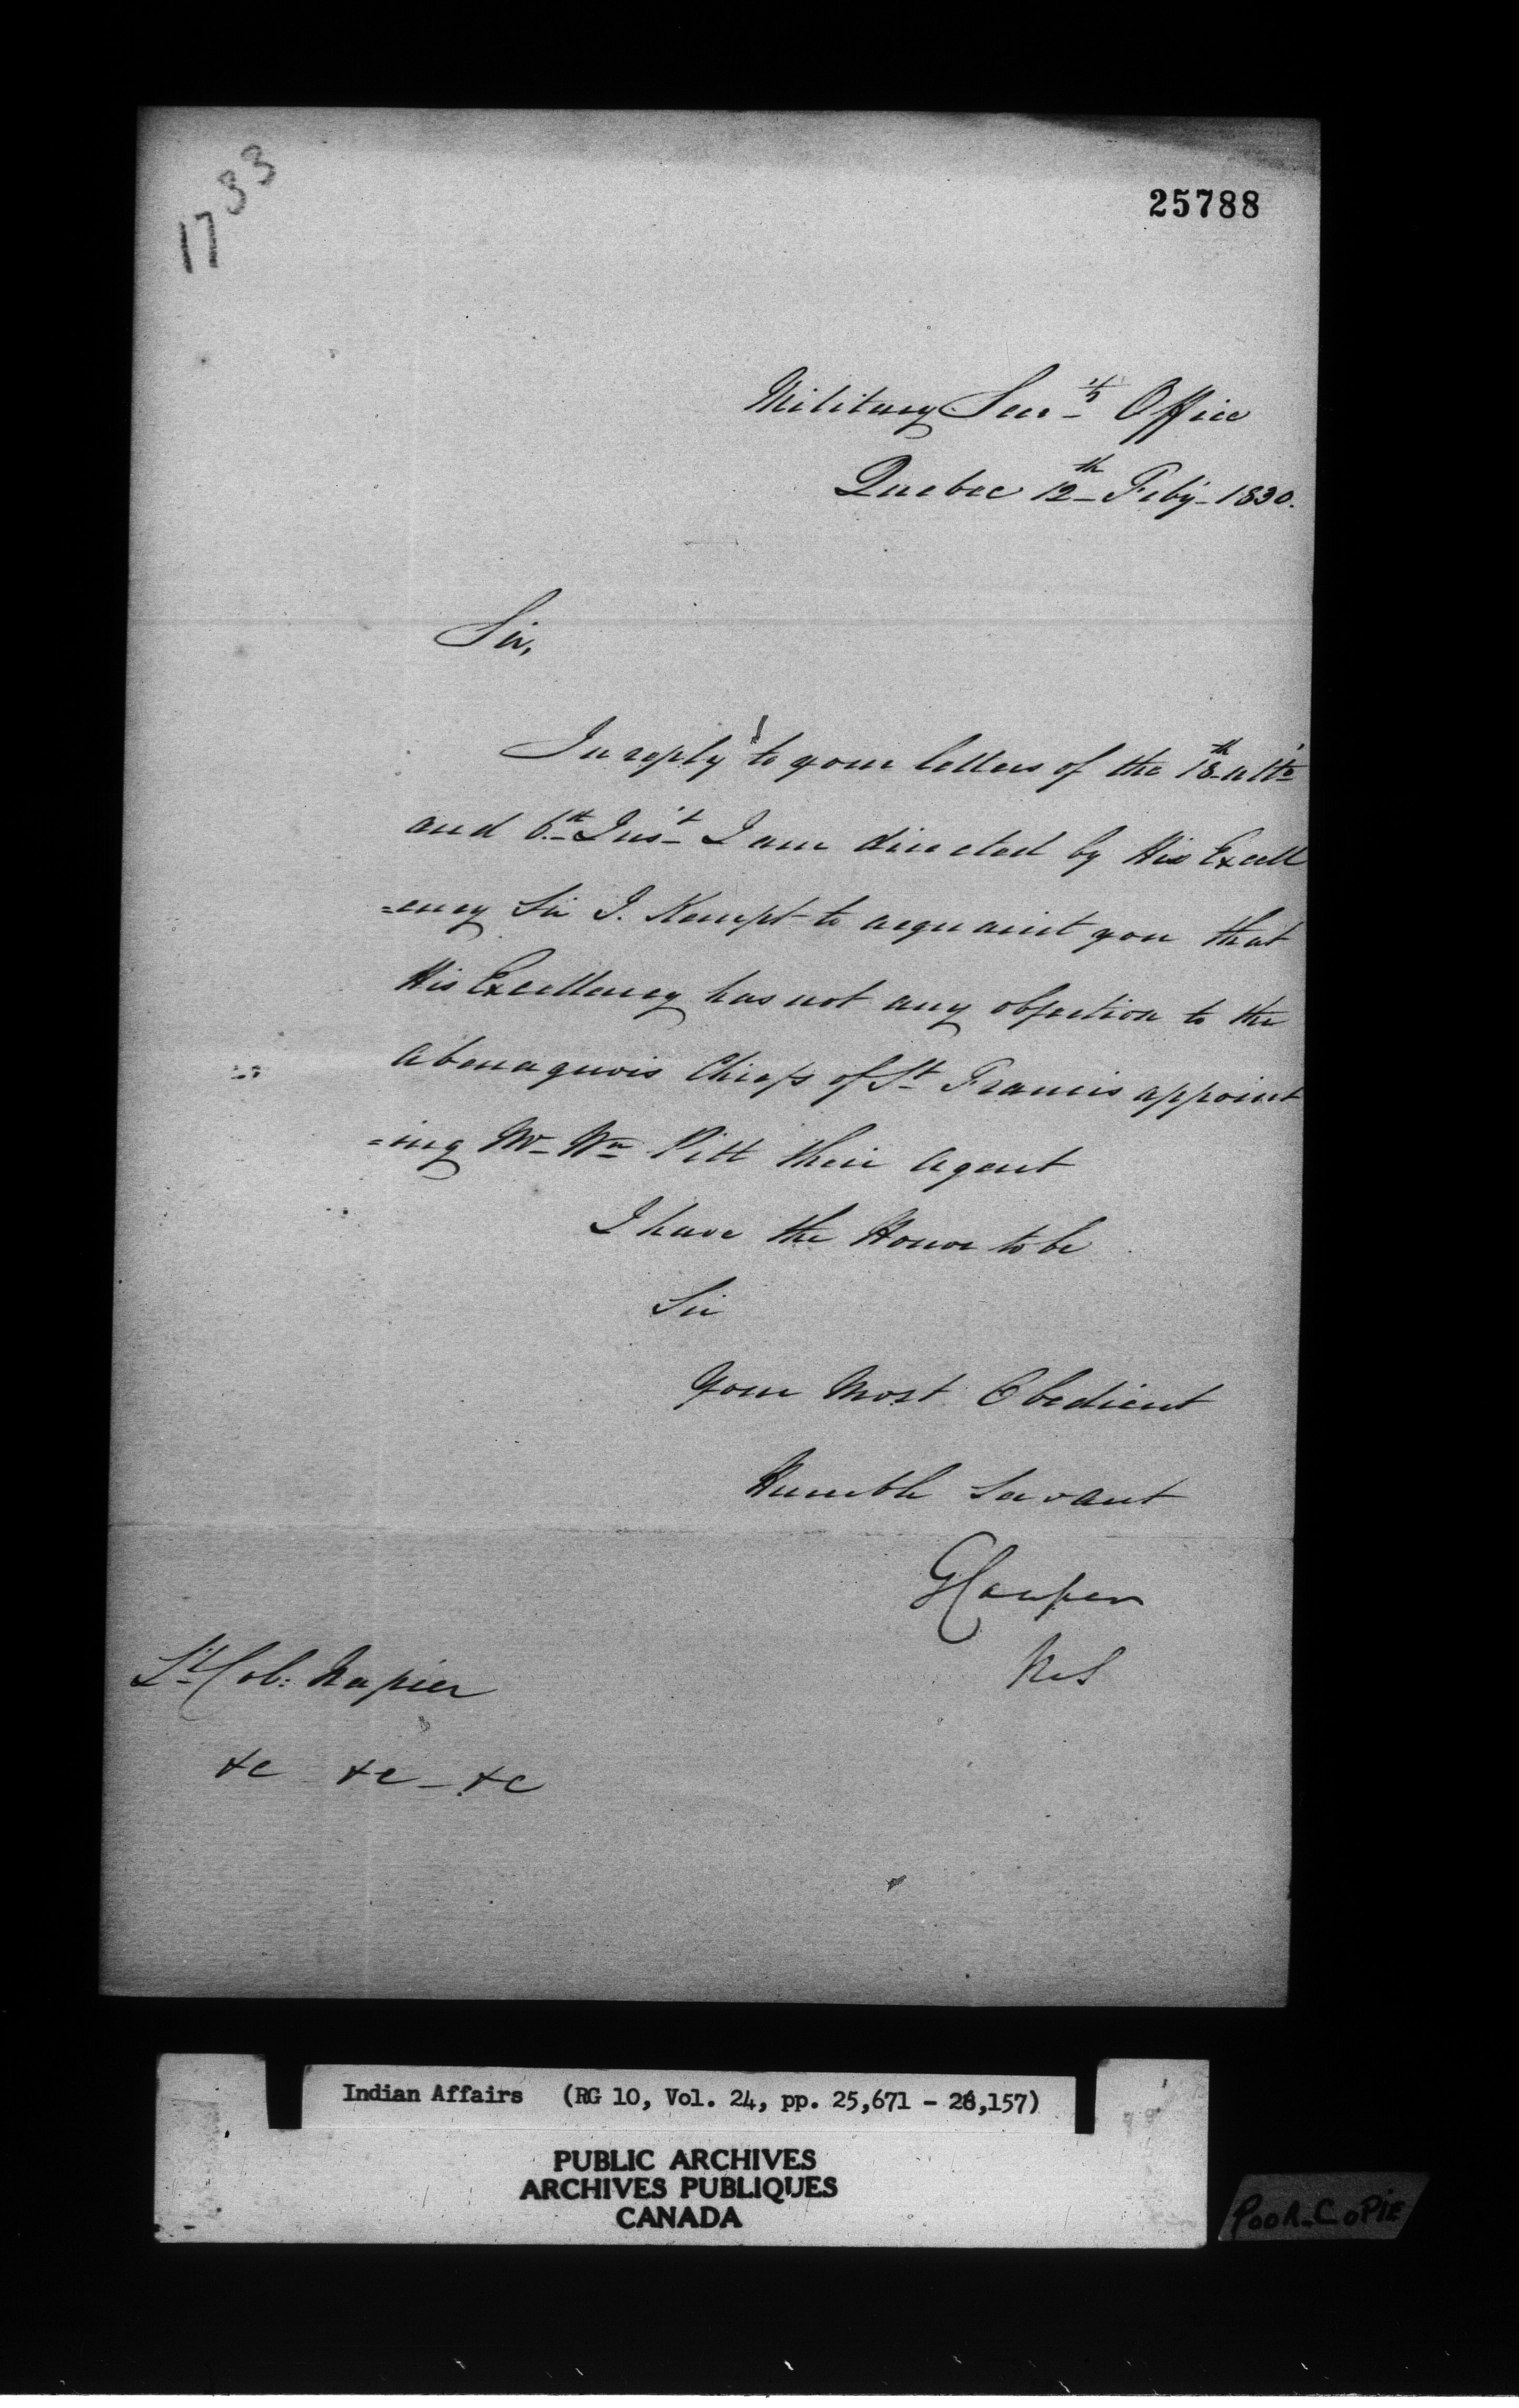 1733
25788
Military Secy's Office
Quebec 12th Feby 1830.
Sir,
In reply to your letters of the 18th ulto
and 6th Inst I am directed by His Excell
=ency Sir J. Kempt to acquaint you that
His Excellency has not any objection to the
Abenaquois Chiefs of St Francis appoint
=ing Mr Wm Pitt their Agent
I have the Honor to be
Sir
Your Most Obedient
Humble Servant
G Couper
MS
Lt Col: Napier
&c &c - &c
Indian Affairs (RG 10, Vol. 24, pp. 25,671 - 26,157)
PUBLIC ARCHIVES
ARCHIVES PUBLIQUES
CANADA
POOR-COPIE